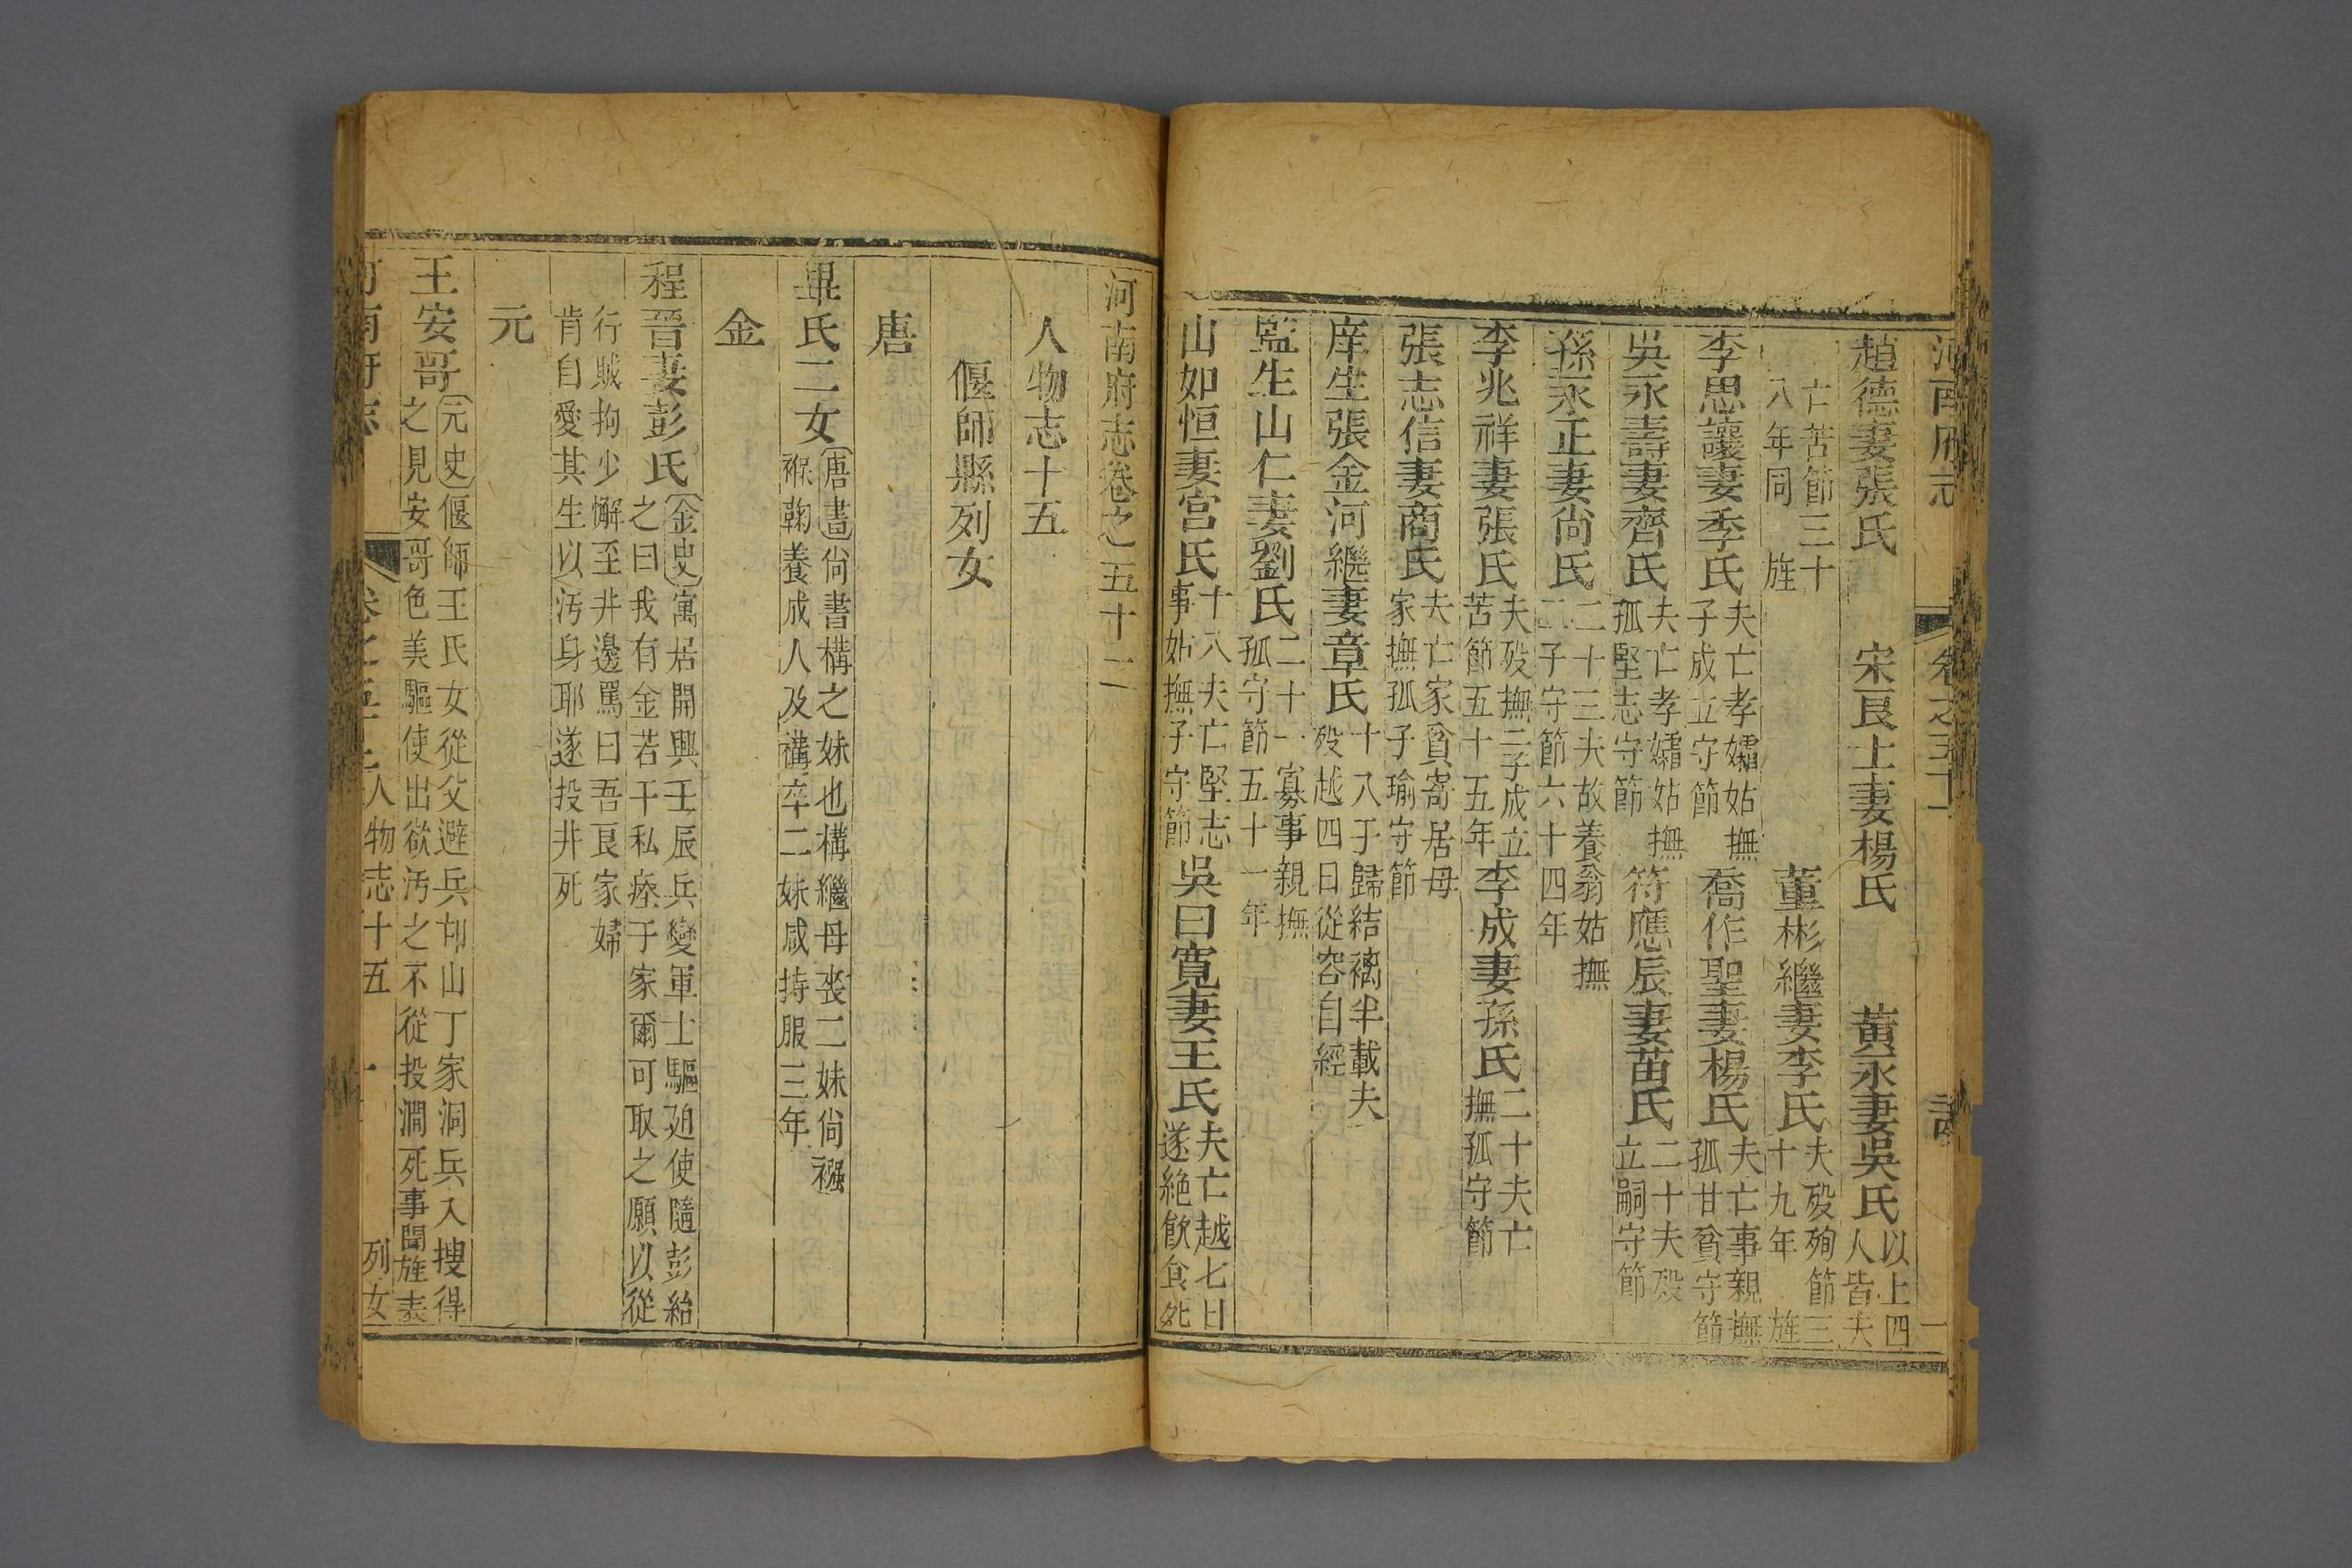 趙德妻張氏　宋良士妻楊氏　黃永妻吳氏以上四人皆夫
亡苦節三十八年同　旌　董彬繼妻李氏夫殁殉節三十九年　旌
李思讓妻季氏夫亡孝孀姑撫子成立守節　喬作聖妻楊氏夫亡事親撫孤甘貧守節
吳永壽妻齊氏夫亡孝孀姑撫孤堅志守節　符應辰妻苗氏二十夫殁立嗣守節
孫永正妻尙氏二十三夫故養翁姑撫二子守節六十四年
李兆祥妻張氏夫殁撫二子成立苦節五十五年　李成妻孫氏二十夫亡撫孤守節
張志信妻商氏夫亡家貧寄居母家撫孤子瑜守節
庠生張金河繼妻章氏十八于歸結褵半載夫殁越四日從容自經
監生山仁妻劉氏二十一寡事親撫孤守節五十一年
山如恒妻宮氏十八夫亡堅志事姑撫子守節　吳曰寬妻王氏夫亡越七日遂絶飲食死
河南府志卷之五十二
人物志十五
偃師縣列女
唐
畢氏二女（唐書）尙書構之妹也構繼母丧二妹尙襁褓鞠養成人及構卒二妹咸持服三年
金
程晉妻彭氏（金史）寓居開興壬辰兵變軍士驅廹使隨彭紿之曰我有金若干私瘞于家爾可取之願以從
行賊拘少懈至井邊罵曰吾良家婦肯自愛其生以汚身耶遂投井死
元
王安哥（元史）偃師王氏女從父避兵邙山丁家洞兵入搜得之見安哥色美驅使出欲汚之不從投澗死事聞旌表
人物志十五　一　列女